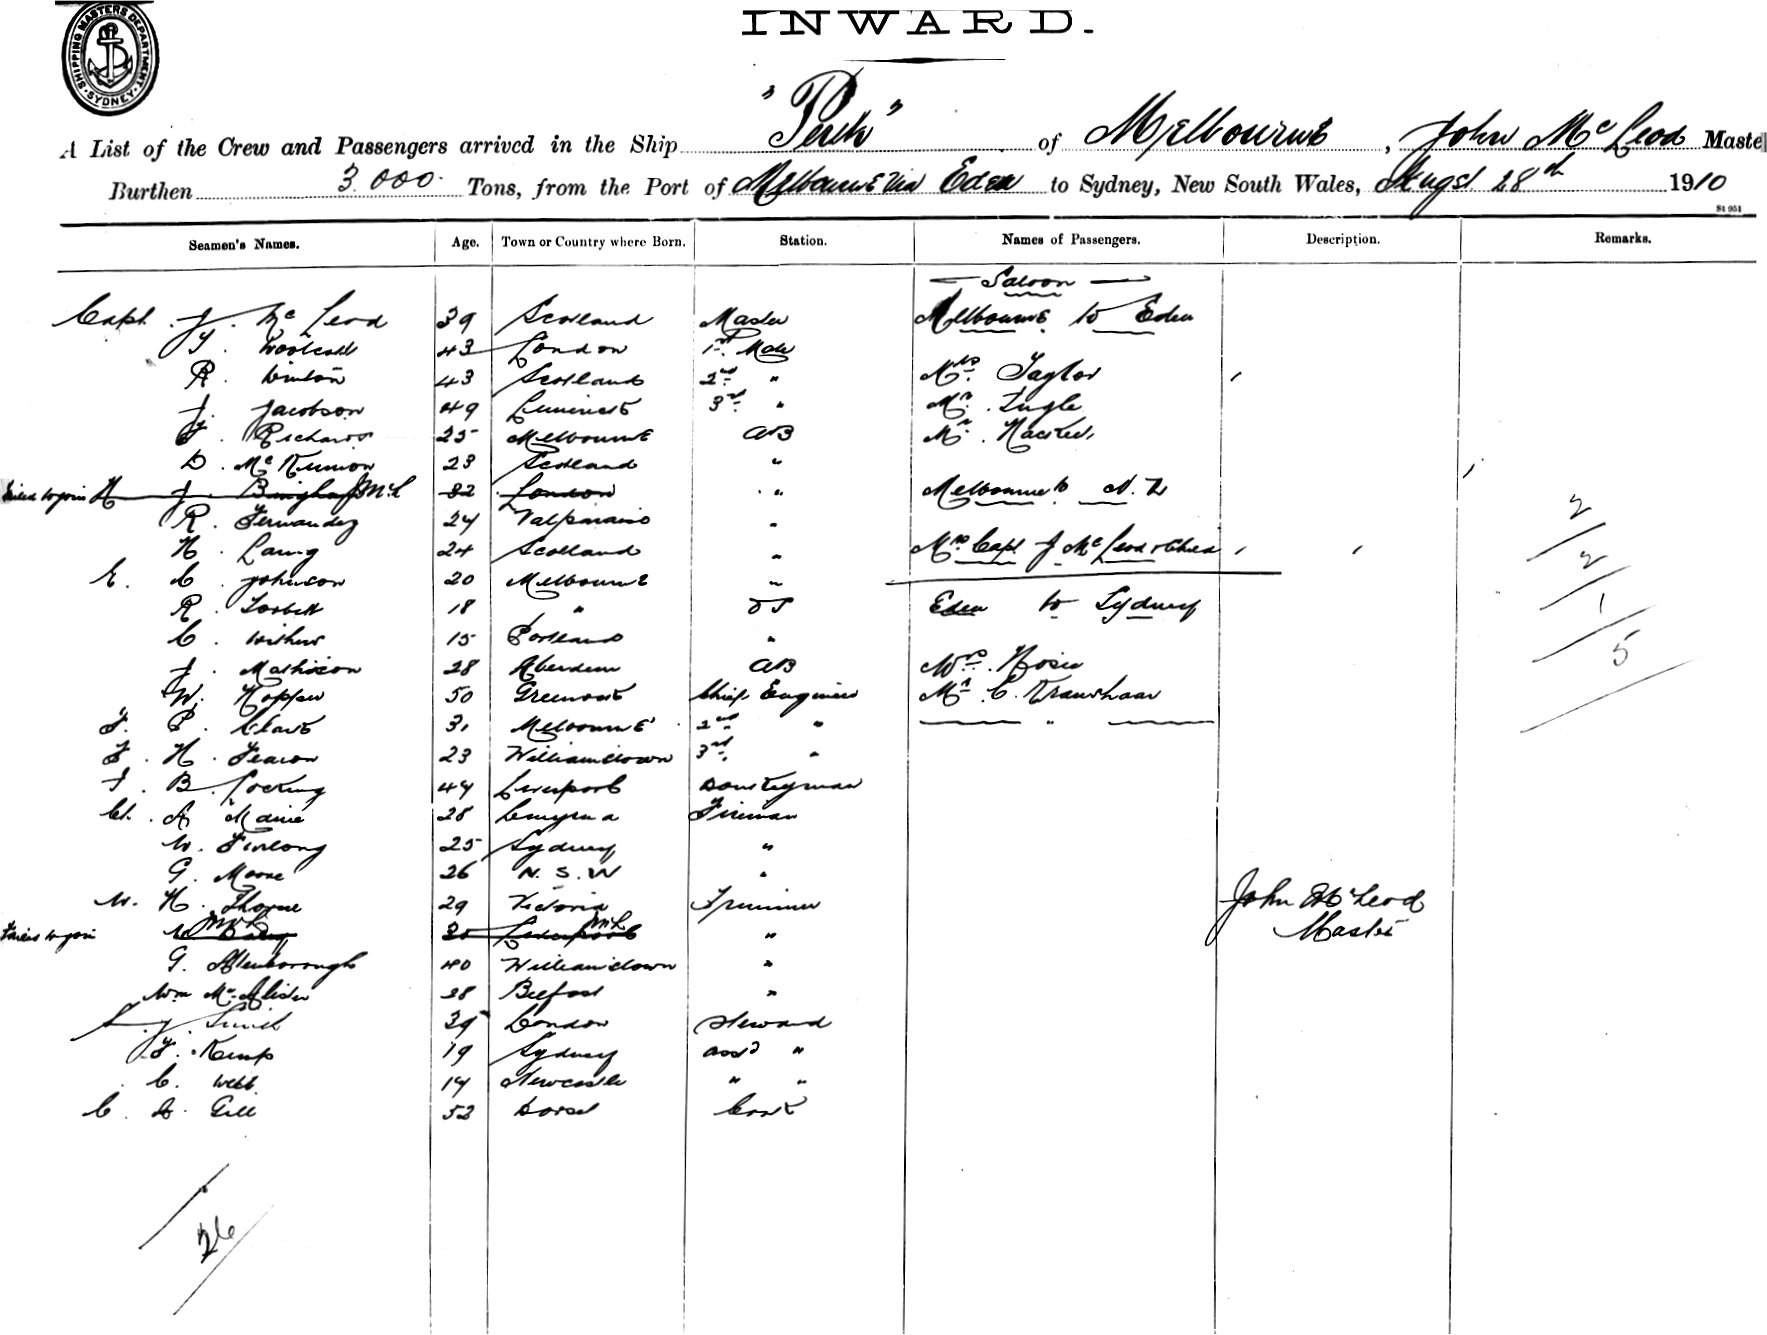 SHIPPING MASTERS DEPARTMENT · SYDNEY ·
INWARD.
A List of the Crew and Passengers arrived in the Ship "Perth" of Melbourne, John Mc Leod Maste
Burthen 3.000. Tons, from the Port of Melbourne Via Eden to Sydney, New South Wales, Augst 28th 1910
St 951
Seamen's Names. Age. Town or Country where Born. Station. Names of Passengers. Description. Remarks.
Saloon
Capt. J. Mc Leod 39 Scotland Master Melbourne to Eden
43 London 1st Mate
R. 43 Scotland 2nd " Mrs. Taylor
J. Jacobson 49 3rd " Mr.
Richards 25 Melbourne AB Mr.
D. Mc 23 Scotland "
Failed to join H J. McL 32 London " Melbourne to N. Z
R. Fernandez 24 Valparaiso " 2
H. Laing 24 Scotland " Mrs. Capt J Mc Leod + Child 2
E. C. Johnson 20 Melbourne "
R. 18 " OS Eden to Sydney 1
C. 15 Portland " 5
J. Mathieson 28 Aberdeen AB Mrs.
W. 50 Chief Engineer Mr. C. Krawshaar
F. P. 31 Melbourne 2nd " "
F. H. Fearon 23 Williamstown 3rd. "
J. B. Cocking 44 Liverpool Donkeyman
A 28 Fireman
W. Furlong 25 Sydney "
G. Moore 26 N. S. W "
W. H. Thorne 29 Victoria Trimmer John McLeod
Failed to join McL 30 Liverpool McL " Master
G. Attenborough 40 Williamstown "
Wm McAlister 38 Belfast "
J. Smith London Steward
F. Kemp 19 Sydney asst "
C. Webb 19 Newcastle " "
C. A. Gill 52 Dorset Cook
26